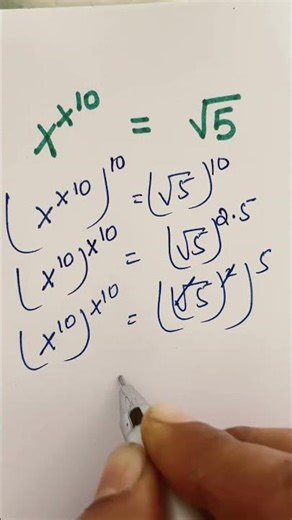 x^x^10 = √5
(x^x^10)^10 = (√5)^10
(x^10)^x^10 = (√5)^2·5
(x^10)^x^10 = ((√5)^2)^5